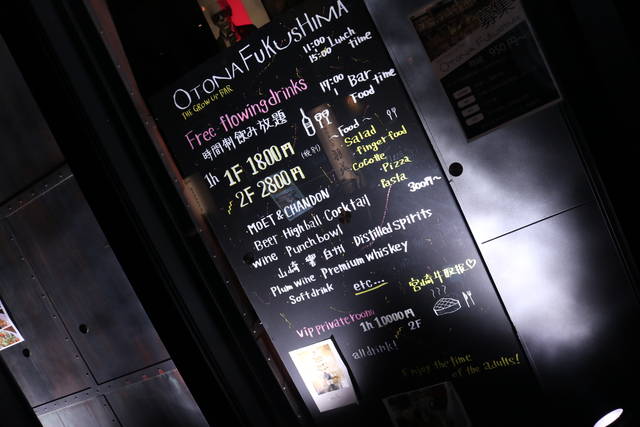 OTONA FUKUSHIMA
THE GROWN UP BAR
11:00
15:00 Lunch time
Free-flowing drinks
17:00 Bar time
Food
時間制飲み放題
1h 1F 1800円 (税別)
2F 2800円
~Food~
Salad
finger food
Cocotte
Pizza
Pasta
300円~
MOËT & CHANDON
Beer Highball Cocktail
wine Punch bowl
山崎 響 白州 Distilled spirits
Plum wine Premium whiskey
Soft drink etc...
宮崎牛取扱♡
vip private room
1h 10000円
all drink! 2F
Enjoy the time
of the adults!